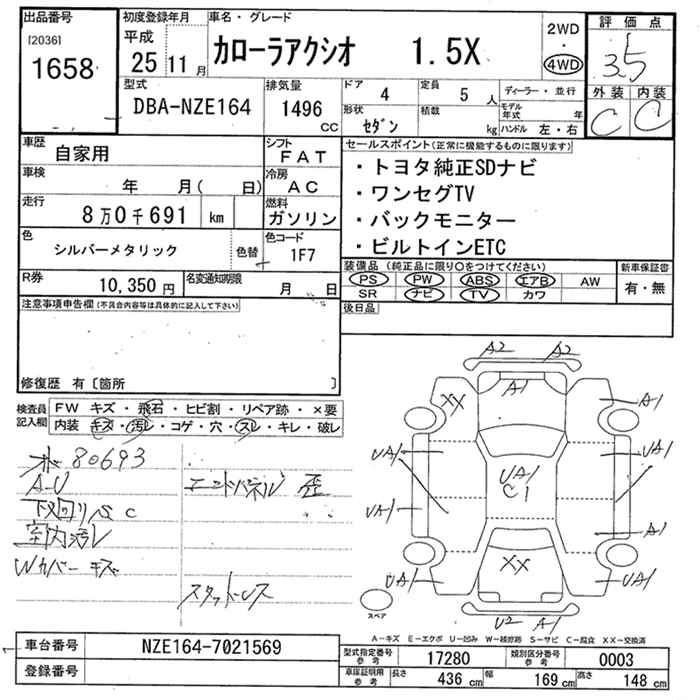 出品番号
[2036]
1658
初度登録年月
平成
25 11 月
車名・グレード
カローラアクシオ 1.5X
2WD
・
4WD
評価点
3.5
外装 内装
C C
型式
DBA-NZE164
排気量
1496 cc
ドア 4
形状 セダン
定員 5 人
積載 kg
ディーラー・並行
モデル年式 年
ハンドル 左・右
車歴 自家用
シフト FAT
車検 年 月( 日)
冷房 AC
走行 8万0千691 km
燃料 ガソリン
色 シルバーメタリック 色替
色コード 1F7
R券 10,350円
名変通知期限 月 日
セールスポイント(正常に機能するものに限ります)
・トヨタ純正SDナビ
・ワンセグTV
・バックモニター
・ビルトインETC
装備品 (純正品に限り○をつけてください)
PS PW ABS エアB AW
SR ナビ TV カワ
新車保証書
有・無
後日品
注意事項申告欄(不具合内容等は具体的に記入して下さい)
修復歴 有〔箇所 〕
検査員記入欄
FW キズ・飛石・ヒビ割・リペア跡・×要
内装 キズ・汚レ・コゲ・穴・スレ・キレ・破レ
80693
A-U
下回りSC
室内汚レ
Wカバーキズ
エンドパネル 歪
スタッドレス
A2 A2
A1
XX
A1
UA1
UA1
UA1
C1
UA1
A1
XX
UA1
UA1
U2 A1
スペア
A-キズ E-エクボ U-凹み W-補修跡 S-サビ C-腐食 XX-交換済
車台番号 NZE164-7021569
登録番号
型式指定番号 参考 17280
類別区分番号 参考 0003
車庫証明用 参考 長さ 436 cm 幅 169 cm 高さ 148 cm